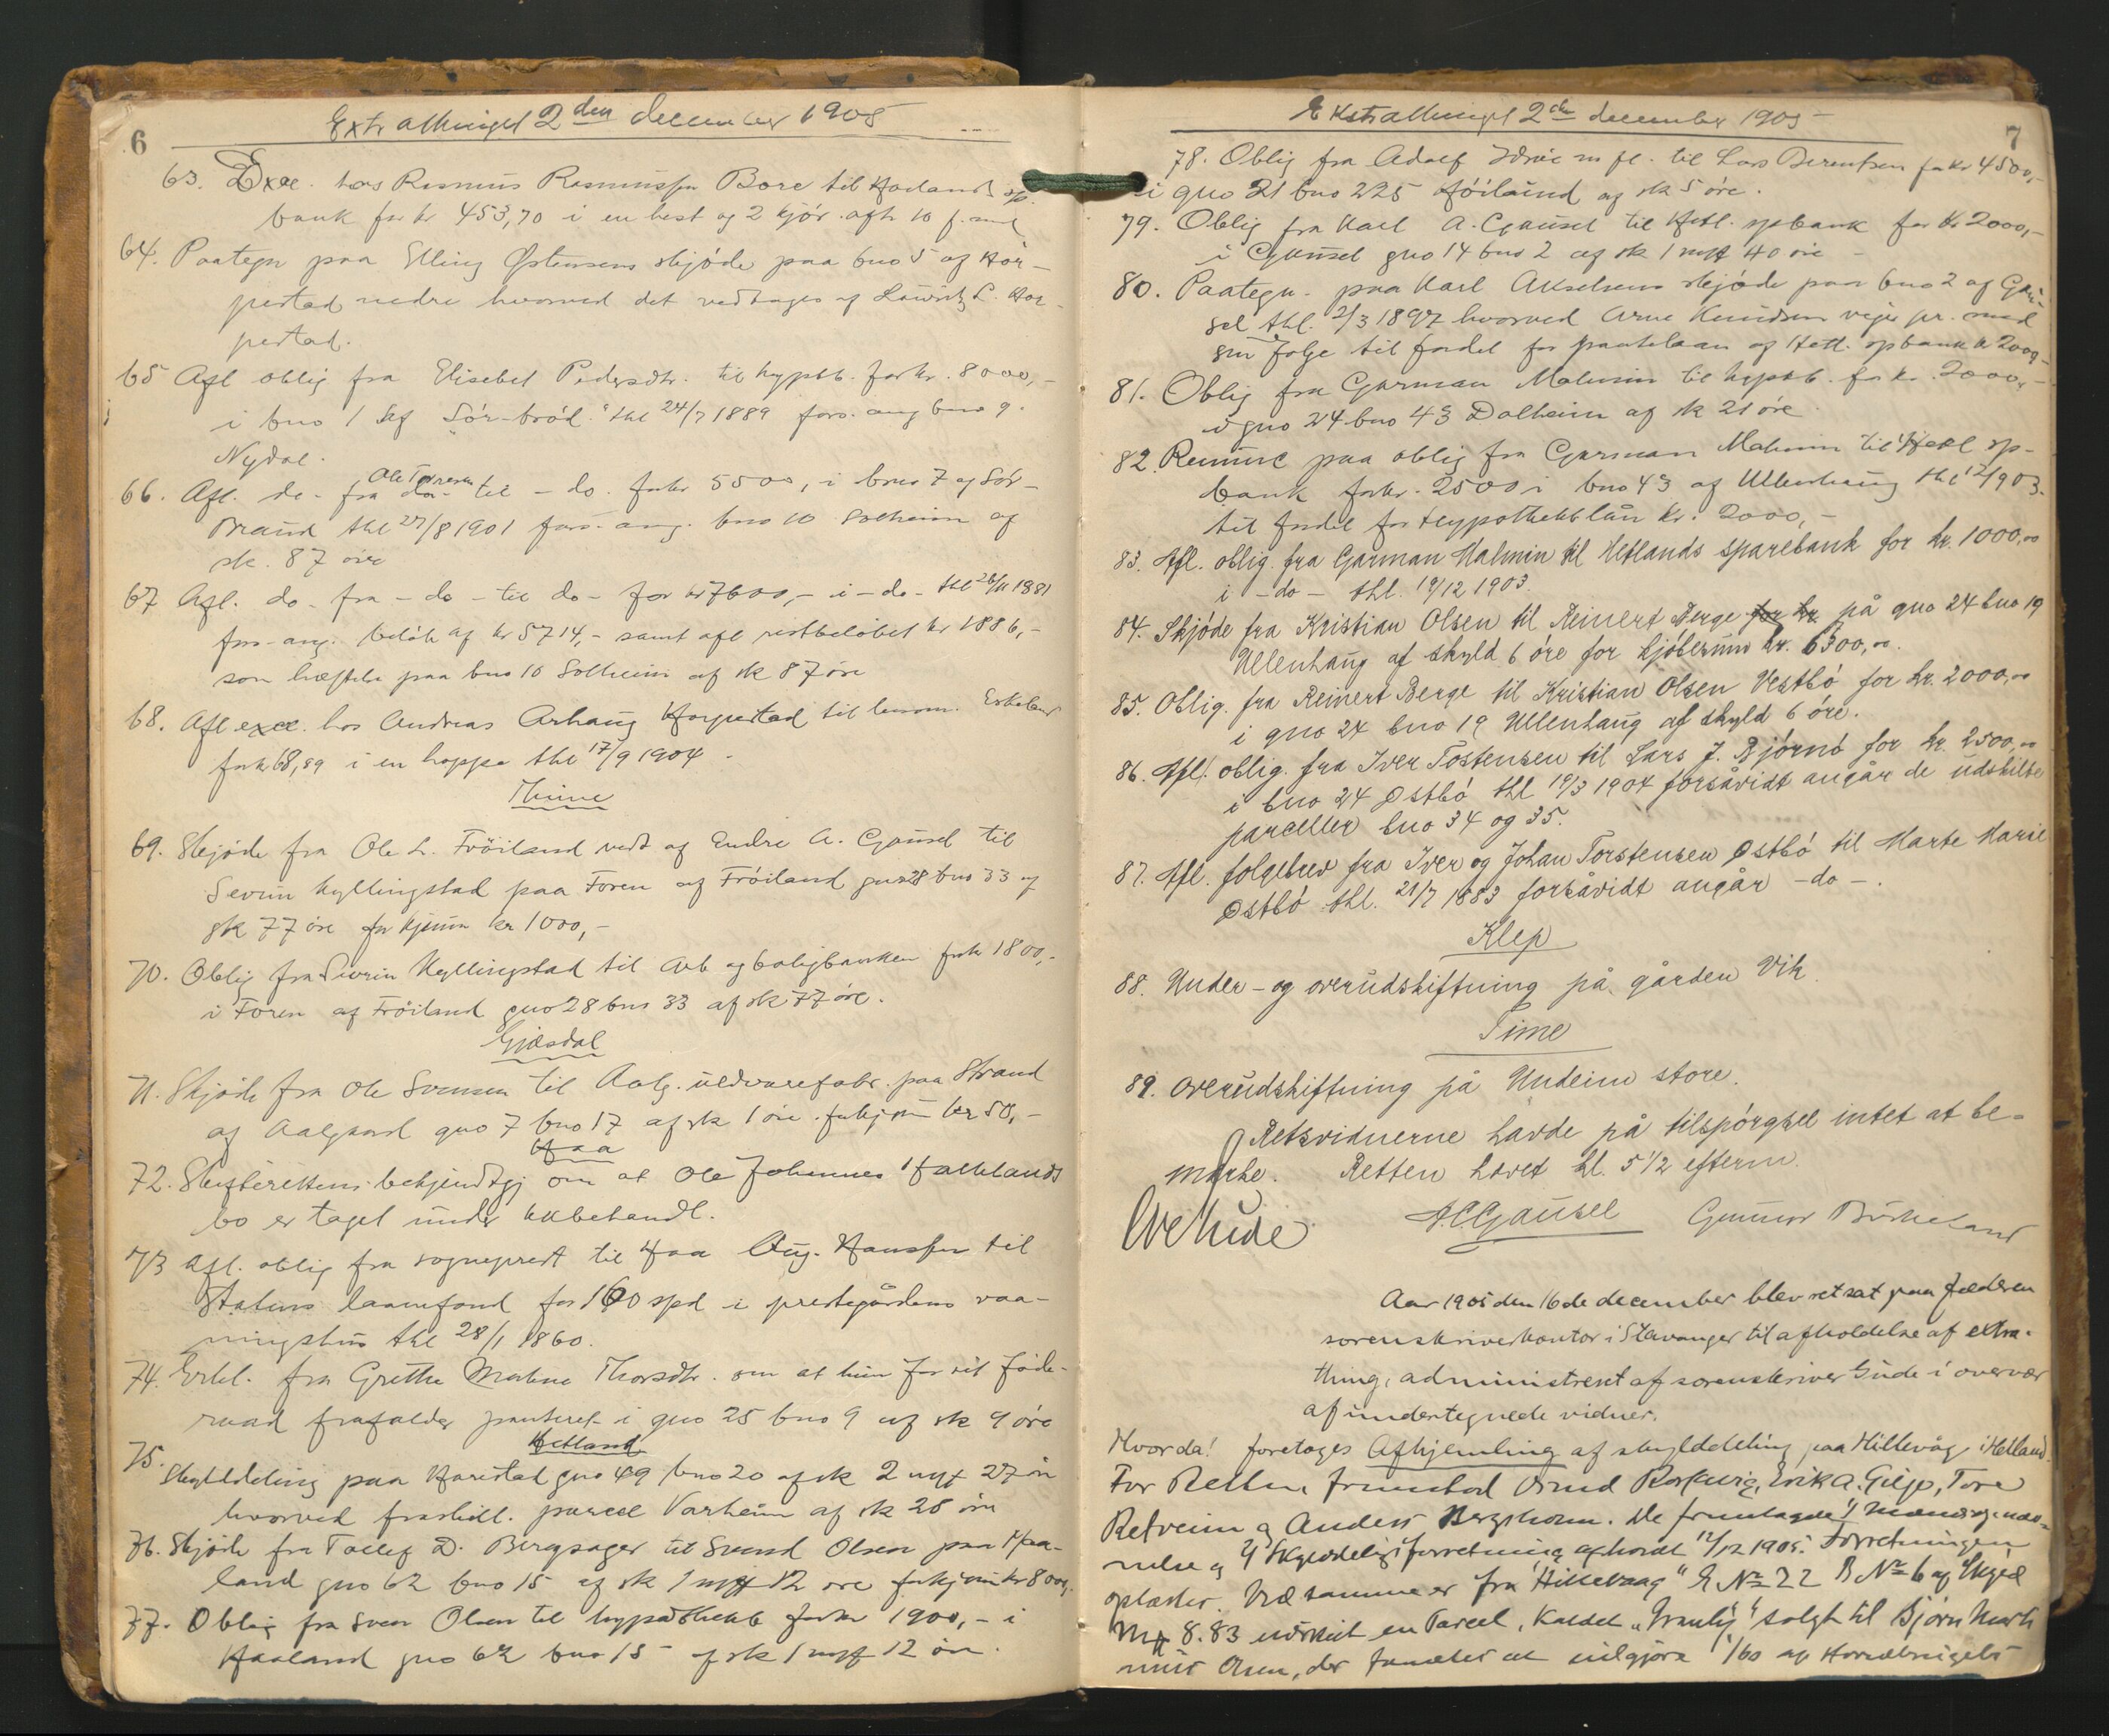 6
Extrathinget 2den december 1905
63. Exec. hos Rasmus Rasmussen Bore til Haaland sp.
bank for kr 453,70 i en hest og 2 kjör. afh 10 f.md
64. Paategn paa Elling Östensens skjöde paa bno 5 af Hör-
pestad nedre hvorved det vedtages af Lauritz L. Hor-
pestad.
65 Afl oblig fra Elisebet Pedersdtr. til hypbk. for kr. 8000,-
i bno 1 af "Sör-bröd" thl 24/7 1889 fors. ang bno 9.
Nydal.
66. Afl. do- fra Ole Tönnesen til - do. for kr 5500, i bno 7 af Sör-
Braud thl 27/8 1901 fors. ang. bno 10 Solheim af
sk. 87 öre
67 Afl. do- fra - do - til do- for kr 7600,- i - do- thl 26/11 1881
fors. ang. beløb af kr 5714,- samt afl restbeløbet kr 1886,-
som hæftelse paa bno 10 Solheim af sk 87 öre
68. Afl exec. hos Andreas Arhaug Horpestad til lensm. Eskeland
for kr 68,89 i en hoppe thl 17/9 1904.
Thime
69. Skjöde fra Ole L. Fröiland vedt af Endre A. Gausel til
Severin Kyllingstad paa Foren af Fröiland gno 28 bno 33 af
sk 77 öre for kjsum kr 1000,-
70. Oblig fra Severin Kyllingstad til Arb og boligbanken for kr 1800,-
i Foren af Fröiland gno 28 bno 33 af sk 77 öre.
Gjæsdal
71. Skjöde fra Ole Svensen til Aalg. uldvarefabr. paa Strand
af Aalgaard gno 7 bno 17 af sk 1 öre for kjsum kr 50,-
Haa
72. Skifterettens bekjendtgj om at Ole Johannes Falkelands
bo er taget under kkbehandl.
73 Afl. oblig fra sogneprest til Haa Aug. Hansson til
Statens laanefond for 160 spd i prestegårdens vaa-
ningshus thl 28/1 1860.
74. Erkl. fra Grethe Malene Thorsdtr. om at hun for sit föde-
raad frafalder panteret i gno 25 bno 9 af sk 9 öre
Hetland
75. Skylddeling paa Harestad gno 49 bno 20 af sk 2 mk 27 öre
hvorved fraskill. parcel Varheim af sk 28 öre
76. Skjöde fra Tollef D. Bergsager til Svend Olsen paa Haa-
land gno 62 bno 15 af sk 1 mk 12 öre for kjsum kr 8000,-
77. Oblig fra Sven Olsen til hypothekb for kr 1900,- i
Haaland gno 62 bno 15 af sk 1 mk 12 öre.
Ekstrathinget 2de december 1905
7
78. Oblig fra Adolf m fl. til Lars Berentsen for kr 4500,-
i gno 21 bno 225 af sk 5 öre.
79. Oblig fra Karl A. Gausel til Hetl. spbank for kr 2000,-
i Gausel gno 14 bno 2 af sk 1 mk 40 öre -
80. Paategn. paa Karl Akselsens skjöde paa bno 2 af Gau-
sel thl. 2/3 1897 hvorved Arne Knudsen viger pr. med
sin folge til fordel for pantelaan af Hetl. spbank kr 2000,-
81. Oblig fra Garman Malmin til hypbk. for kr. 2000,-
i gno 24 bno 43 Dalheim af sk 21 öre
82. Renunc paa oblig fra Garman Malmin til Hetl sp-
bank for kr. 2500 i bno 43 af Ullenhaug thl 1903.
til fordel for Hypothekblån kr. 2000,-
83. Afl. oblig. fra Garman Malmin til Hetlands Sparebank for kr. 1000,oo
i - do - thl. 19/12 1903.
84. Skjöde fra Kristian Olsen til Reinert Berge for kr. på gno 24 bno 19
Ullenhaug af skyld 6 öre for kjöbesum kr. 6300,oo.
85. Oblig. fra Reinert Berge til Kristian Olsen Vestbö for kr. 2000,oo
i gno 24 bno 19 Ullenhaug af skyld 6 öre.
86. Afl. oblig. fra Iver Tostensen til Lars J. Björnö for kr. 2500,oo
i bno 24 Østbö thl 19/3 1904 forsåvidt angår de udskilte
parceller bno 34 og 35.
87. Afl. folgebrev fra Iver og Johan Torstensen Østbö til Marte Marie
Østbö thl. 21/7 1883 forsåvidt angår - do -.
Klep
88. Under- og overudskiftning på gården Vik.
Time
89. Overudskiftning på Undeim store.
Retsvidnerne havde på tilspörgsel intet at be-
mærke. Retten hævet kl. 5 1/2 efterm.
Ove Gude A.C. Gausel Gunnar Birkeland
Aar 1905 den 16de december blev ret sat paa Jæderen
sorenskriverkontor i Stavanger til afholdelse af extra-
thing, administreret af sorenskriver Gude i overvær
af undertegnede vidner.
Hvorda! foretoges Afhjemling af skylddeling paa Hillevåg i Hetland.
For Retten fremstod Erik A. Gilje, Tore
Retveim og Anders Bergsholm. De fremlagde 1) Mændsopnæv-
nelse og 2) Skylddelingsforretning afholdt 12/12 1905. Forretningen
oplæstes. Ved samme er fra "Hillevaag" G No 22 B No 6 af Skyld
Mk 8.83 udskilt en Parcel, kaldet "Granly" solgt til Björn Marti-
nius Olsen, der fandtes at udgjöre 1/60 af Hovedbrugets